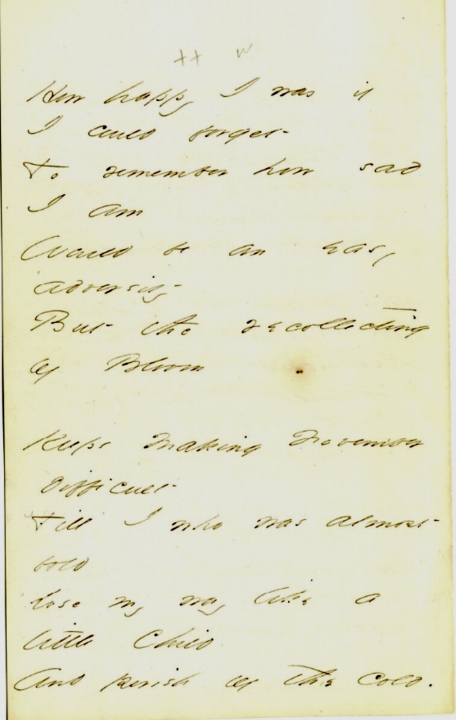 ++ w
How happy I was if
I could forget
To remember how sad
I am
Would be an easy
adversity
But the recollecting
of Bloom
Keeps making November
difficult
Till I who was almost
bold
Lose my way like a
little Child
And perish of the cold.